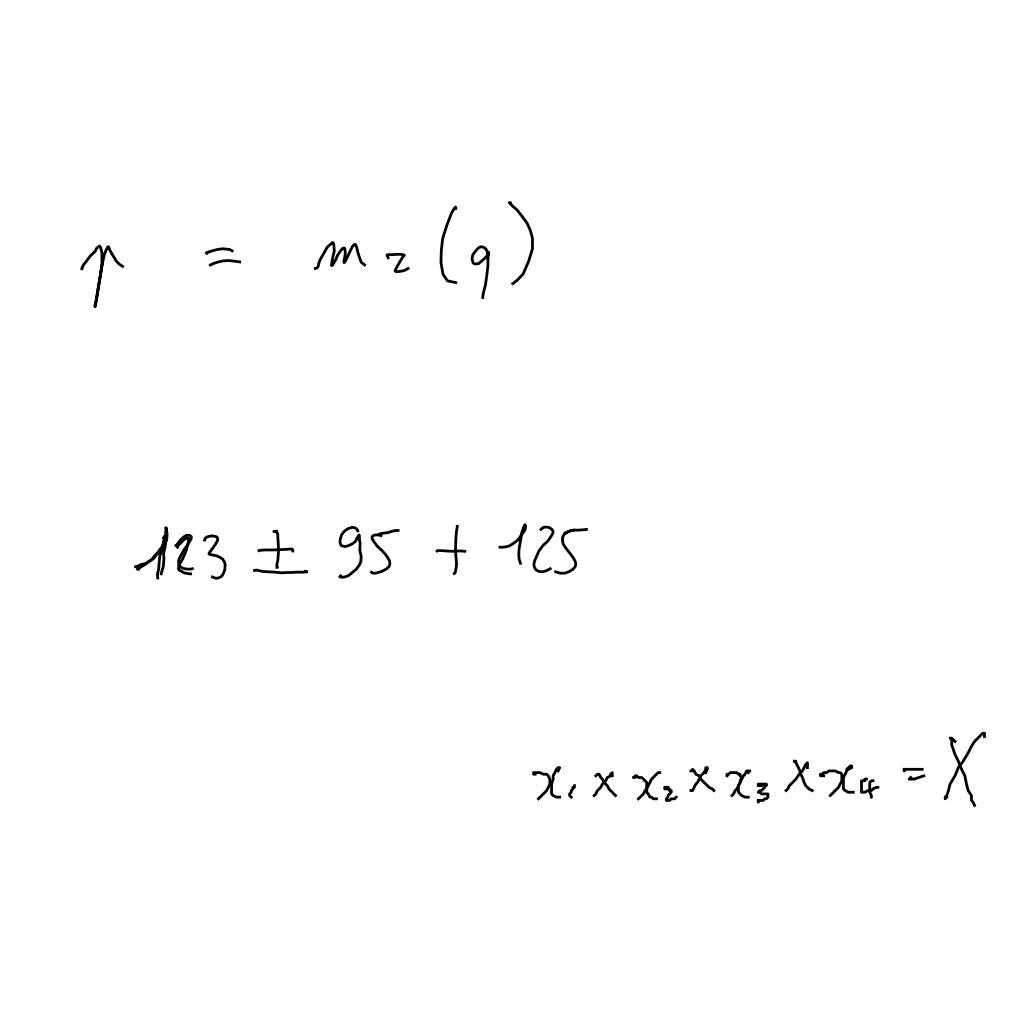 ↑ = m₂(q)
123 ± 95 + 125
x₁ × x₂ × x₃ × x₄ = X